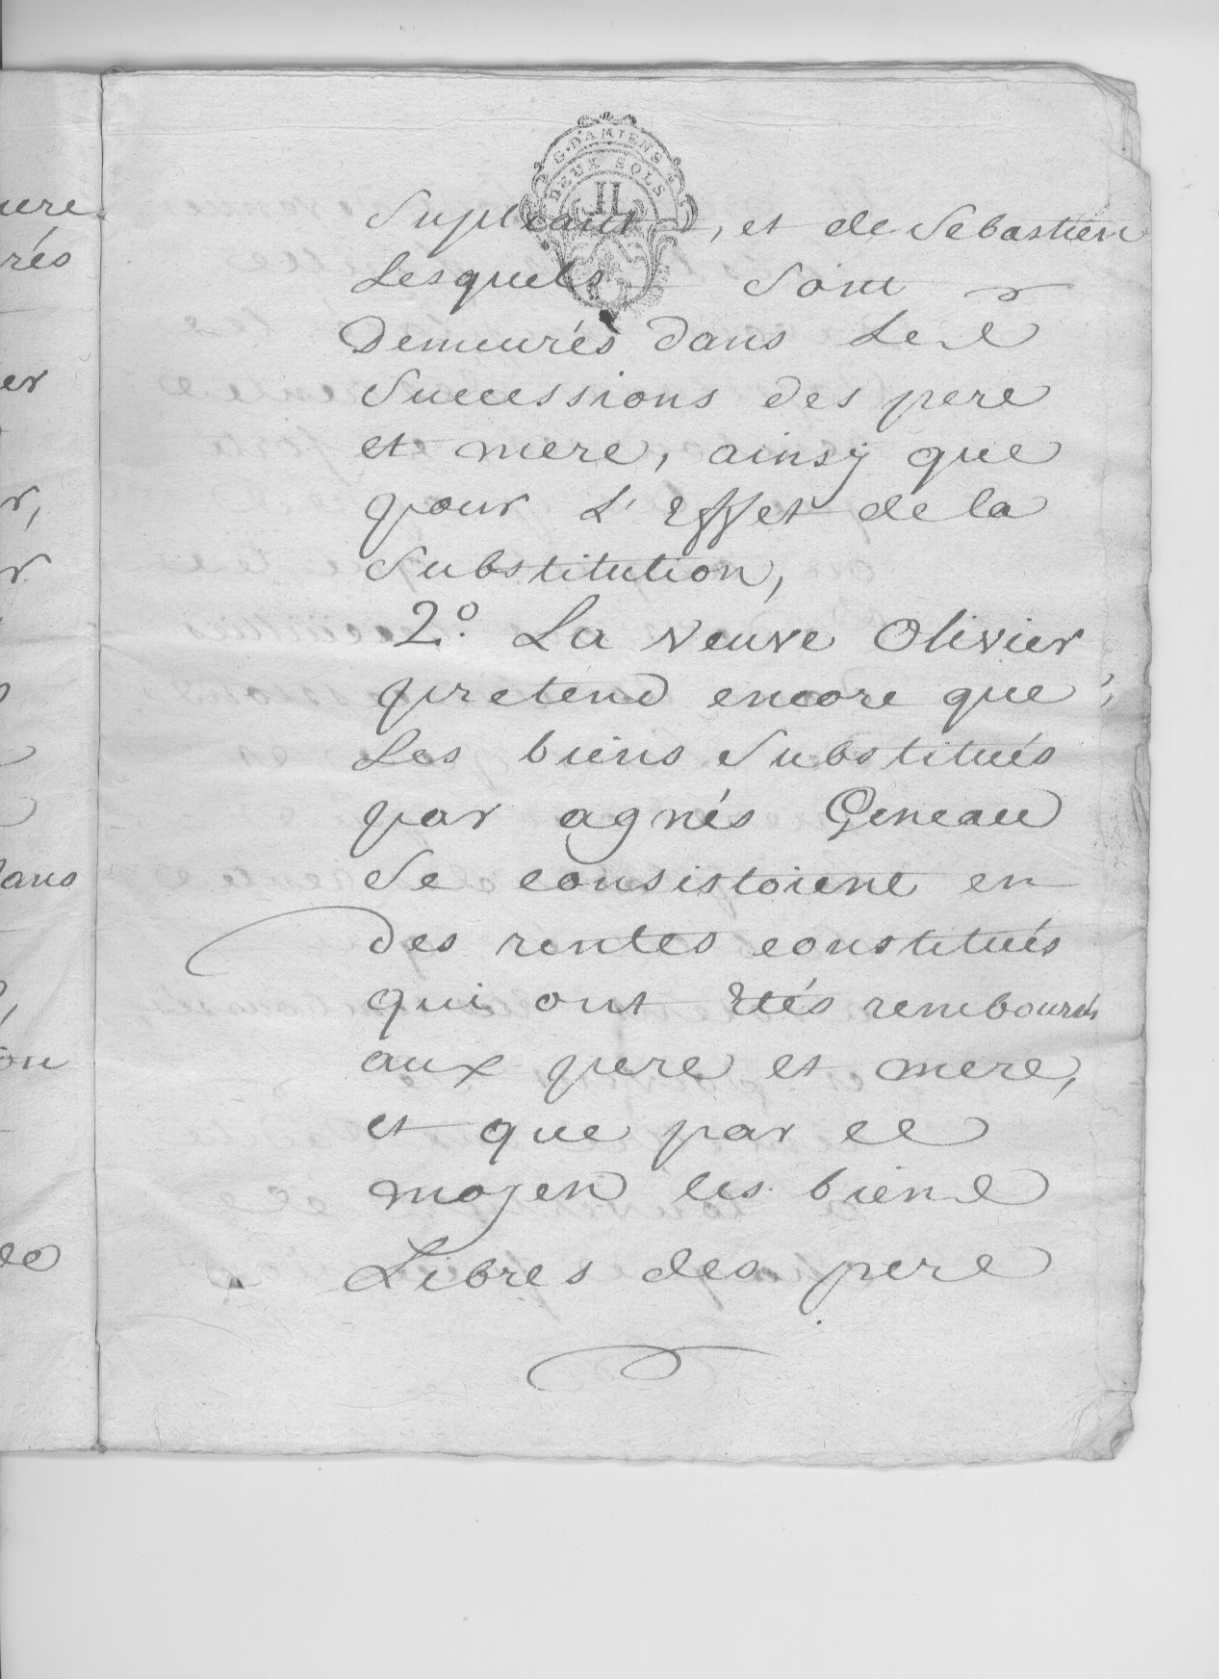 G. DAMIENS
DEUX SOLS
II
Supliant, et de Sebastien
Lesquels sont
Demeurés dans les
Successions des pere
et mere, ainsy que
pour L'Effet de la
Substitution,
2.º La veuve Olivier
pretend encore que
Les biens Substitués
par agnés Geneau
Se consistoient en
des rentes constitués
qui ont Etés remboursés
aux pere et mere,
et que par ce
moyen les biens
Libres des pere
uere
rés
er
r,
r
ans
on